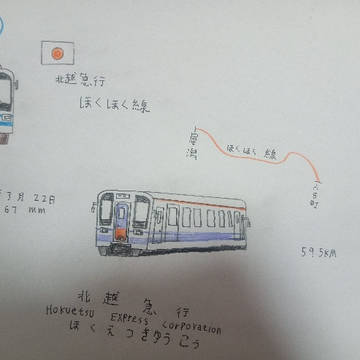 北越急行
ほくほく線
犀潟
ほくほく線
六日町
3月22日
67 mm
59.5KM
北越急行
Hokuetsu Express Corporation
ほくえつきゅうこう